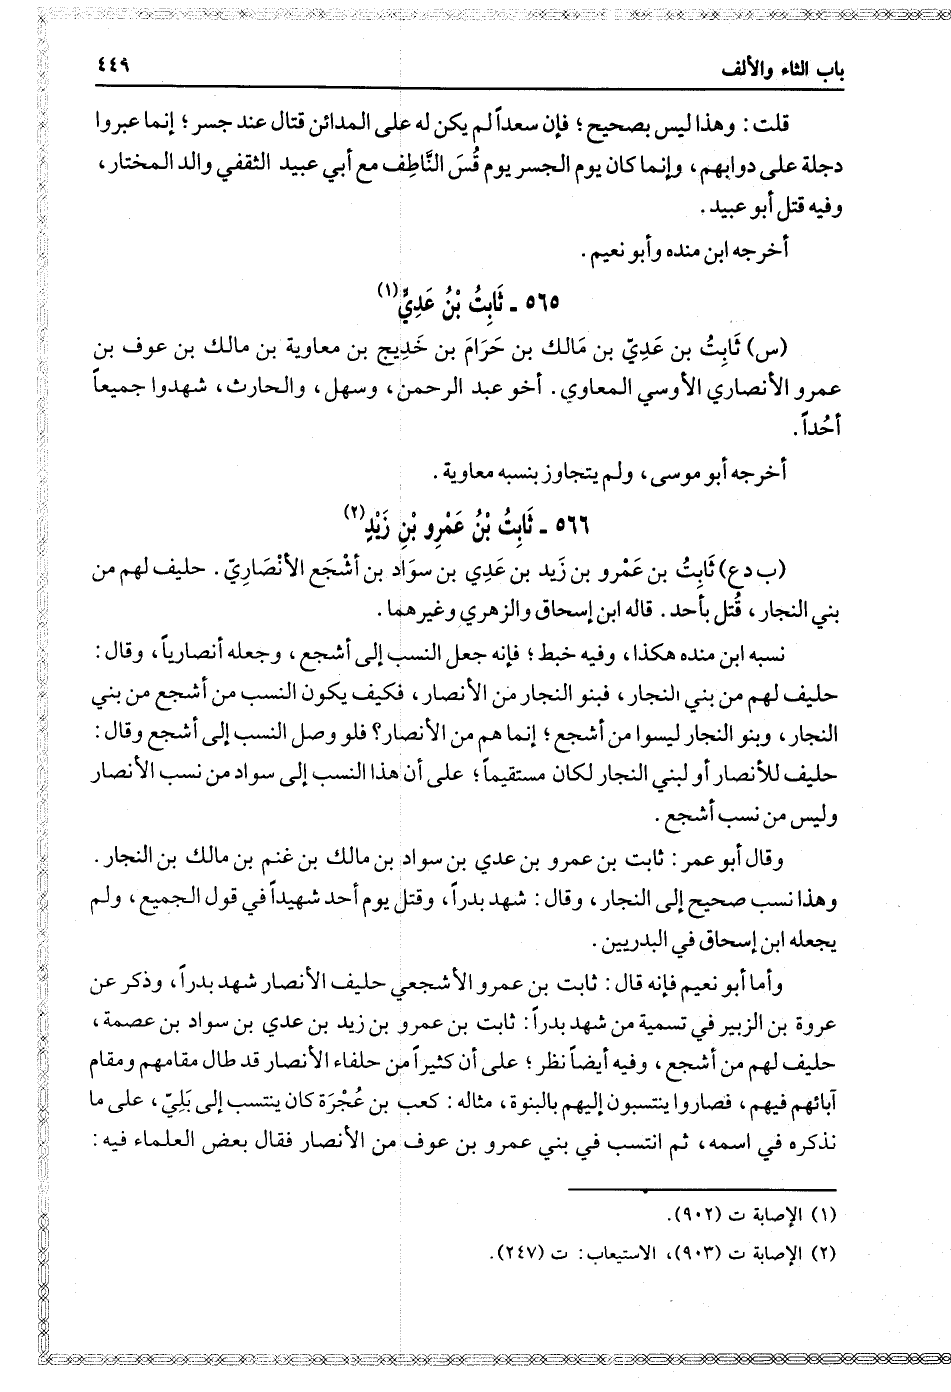 باب الثاء والألف ٤٤٩
قلت : وهذا ليس بصحيح ؛ فإن سعداً لم يكن له على المدائن قتال عند جسر ؛ إنما عبروا
دجلة على دوابهم ، وإنما كان يوم الجسر يوم قُسَ النَّاطِف مع أبي عبيد الثقفي والد المختار ،
وفيه قتل أبو عبيد .
أخرجه ابن منده وأبو نعيم .
٥٦٥ ـ ثَابِتُ بْنُ عَدِيٍّ(١)
(س) ثَابِتُ بن عَدِيّ بن مَالك بن حَرَامَ بن خَدِيج بن معاوية بن مالك بن عوف بن
عمرو الأنصاري الأوسي المعاوي . أخو عبد الرحمن ، وسهل ، والحارث ، شهدوا جميعاً
أحُداً .
أخرجه أبو موسى ، ولم يتجاوز بنسبه معاوية .
٥٦٦ ـ ثَابِتُ بْنُ عَمْرِو بْنِ زَيْدٍ(٢)
(ب د ع) ثَابِتُ بن عَمْرو بن زَيد بن عَدِي بن سوَاد بن أشْجَع الأنْصَارِيّ . حليف لهم من
بني النجار ، قُتل بأحد . قاله ابن إسحاق والزهري وغيرهما .
نسبه ابن منده هكذا ، وفيه خبط ؛ فإنه جعل النسب إلى أشجع ، وجعله أنصارياً ، وقال :
حليف لهم من بني النجار ، فبنو النجار من الأنصار ، فكيف يكون النسب من أشجع من بني
النجار ، وبنو النجار ليسوا من أشجع ؛ إنما هم من الأنصار ؟ فلو وصل النسب إلى أشجع وقال :
حليف للأنصار أو لبني النجار لكان مستقيماً ؛ على أن هذا النسب إلى سواد من نسب الأنصار
وليس من نسب أشجع .
وقال أبو عمر : ثابت بن عمرو بن عدي بن سواد بن مالك بن غنم بن مالك بن النجار .
وهذا نسب صحيح إلى النجار ، وقال : شهد بدراً ، وقتل يوم أحد شهيداً في قول الجميع ، ولم
يجعله ابن إسحاق في البدريين .
وأما أبو نعيم فإنه قال : ثابت بن عمرو الأشجعي حليف الأنصار شهد بدراً ، وذكر عن
عروة بن الزبير في تسمية من شهد بدراً : ثابت بن عمرو بن زيد بن عدي بن سواد بن عصمة ،
حليف لهم من أشجع ، وفيه أيضاً نظر ؛ على أن كثيراً من حلفاء الأنصار قد طال مقامهم ومقام
آبائهم فيهم ، فصاروا ينتسبون إليهم بالبنوة ، مثاله : كعب بن عُجْرَة كان ينتسب إلى بَلِيّ ، على ما
نذكره في اسمه ، ثم انتسب في بني عمرو بن عوف من الأنصار فقال بعض العلماء فيه :
(١) الإصابة ت (٩٠٢).
(٢) الإصابة ت (٩٠٣)، الاستيعاب : ت (٢٤٧).